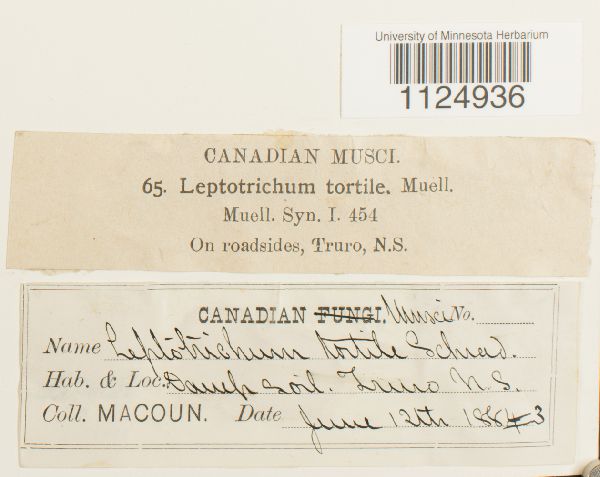 University of Minnesota Herbarium
1124936
CANADIAN MUSCI.
65. Leptotrichum tortile. Muell.
Muell. Syn. I. 454
On roadsides, Truro, N.S.
CANADIAN FUNGI. Musci No.
Name Leptotrichum tortile Schrad.
Hab. & Loc. Damp soil. Truro N.S.
Coll. MACOUN. Date June 12th 1884 3